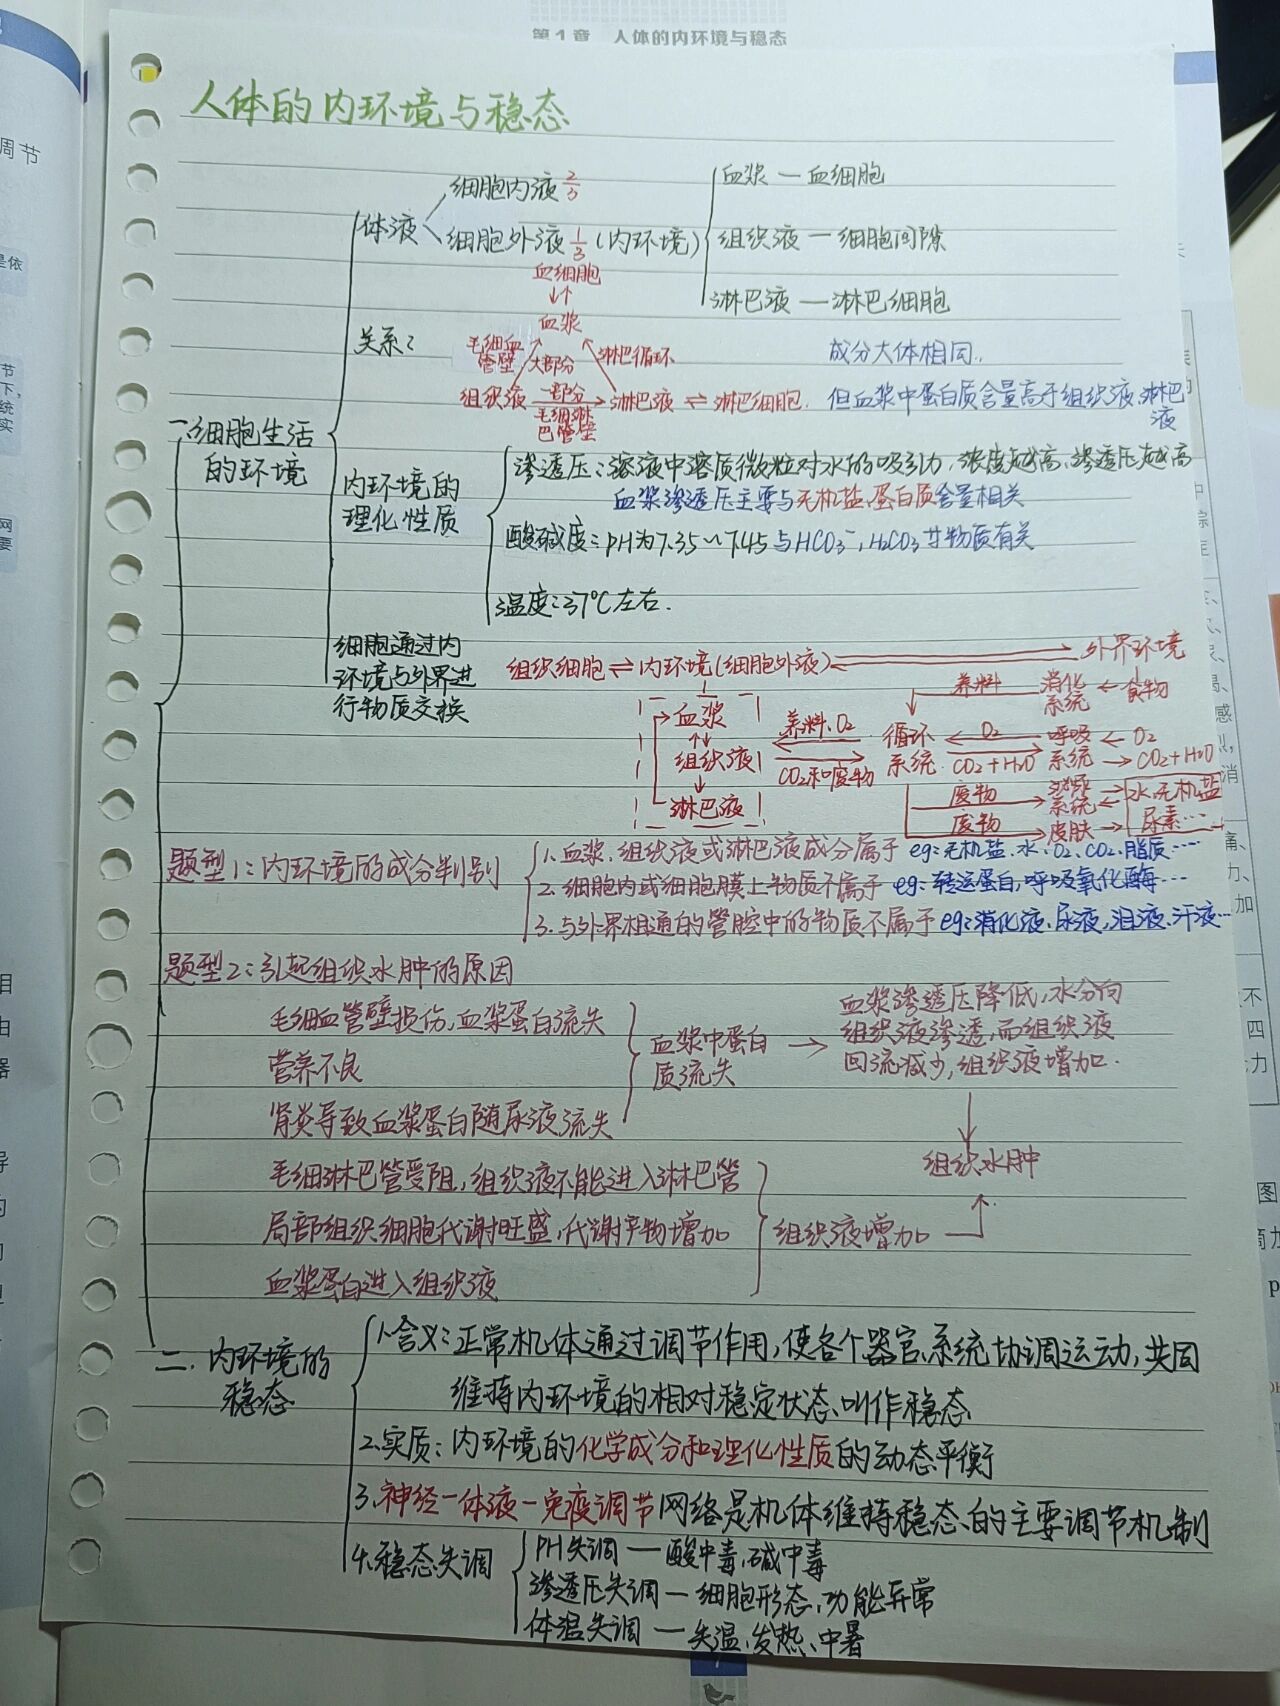 第1章 人体的内环境与稳态
调节
人体的内环境与稳态
一.细胞生活的环境
体液
细胞内液 2/3
细胞外液 1/3 (内环境)
血浆 — 血细胞
组织液 — 细胞间隙
淋巴液 — 淋巴细胞
关系:
血细胞
↓↑
血浆
毛细血管壁 大部分 淋巴循环
组织液 一部分 毛细淋巴管壁 → 淋巴液 ⇌ 淋巴细胞.
成分大体相同.,
但血浆中蛋白质含量高于组织液.淋巴液
内环境的理化性质
渗透压:溶液中溶质微粒对水的吸引力,浓度越高,渗透压越高
血浆渗透压主要与无机盐.蛋白质含量相关
酸碱度:PH为7.35~7.45与HCO3⁻,H2CO3等物质有关
温度:37℃左右.
细胞通过内环境与外界进行物质交换
组织细胞 ⇌ 内环境(细胞外液) ⇌ 外界环境
养料 消化系统 ← 食物
血浆 养料.O2 循环系统 O2 呼吸系统 ← O2
组织液 CO2和废物 CO2+H2O → CO2+H2O
淋巴液
废物 泌尿系统 水.无机盐
废物 皮肤 尿素…
题型1:内环境的成分判别
1.血浆.组织液或淋巴液成分属于 eg:无机盐.水.O2.CO2.脂质……
2.细胞内或细胞膜上物质不属于 eg:转运蛋白,呼吸氧化酶…
3.与外界相通的管腔中的物质不属于 eg:消化液.尿液,泪液.汗液…
题型2:引起组织水肿的原因
毛细血管壁损伤,血浆蛋白流失
营养不良
肾炎导致血浆蛋白随尿液流失
血浆中蛋白质流失
→ 血浆渗透压降低,水分向
组织液渗透,而组织液
回流减少,组织液增加.
组织水肿
毛细淋巴管受阻,组织液不能进入淋巴管
局部组织细胞代谢旺盛,代谢产物增加
血浆蛋白进入组织液
组织液增加
二.内环境的稳态
1.含义:正常机体通过调节作用,使各个器官.系统协调运动,共同
维持内环境的相对稳定状态叫作稳态
2.实质:内环境的化学成分和理化性质的动态平衡
3.神经一体液一免疫调节网络是机体维持稳态的主要调节机制
4.稳态失调
PH失调 — 酸中毒,碱中毒
渗透压失调 — 细胞形态,功能异常
体温失调 — 失温,发热,中暑